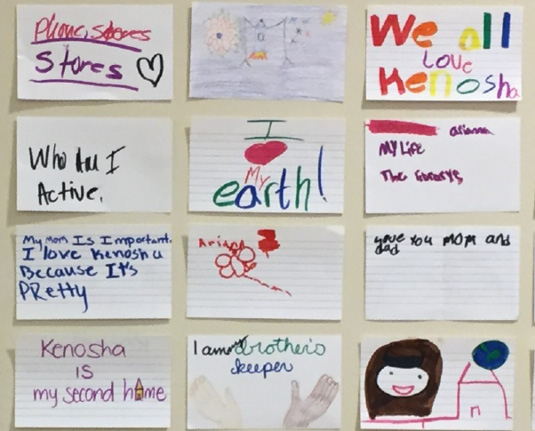 Phone, stores
Stores
We all
Love
Kenosha
Who Am I
Active.
I
My
earth!
arianna
My Life
The
My Mom Is Important.
I love Kenosha
Because It's
PRetty
Ariana
Love You MOM and
dad
Kenosha
IS
my second home
I am my brother's
keeper